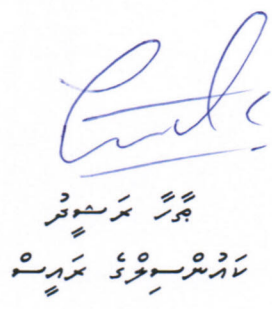 ޠާހާ ރަޝީދު
ކައުންސިލްގެ ރައީސް